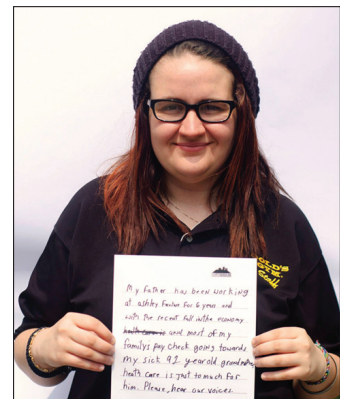 GOLD'S
GYM
My father has been working
at ashley Furter for 6 years and
with the recent fall in the economy
heath care is and most of my
familys pay cheak going towards
my sick 91 year old grandmother
heath care is just to much for
him. Please, hear our voices